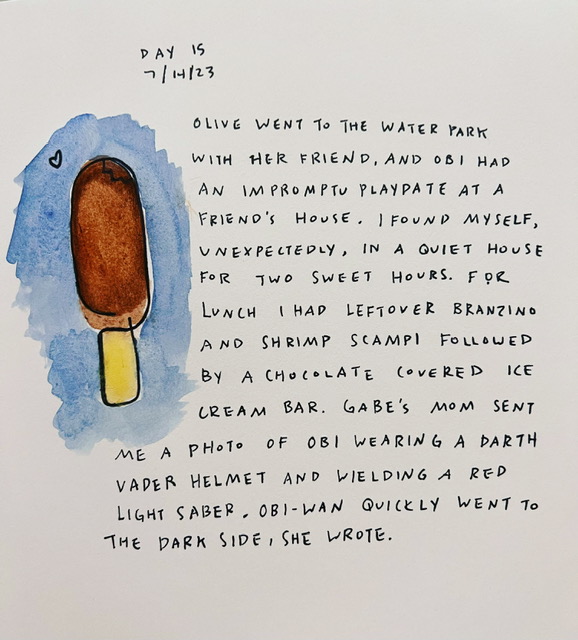 DAY 15
7/14/23
OLIVE WENT TO THE WATER PARK
WITH HER FRIEND, AND OBI HAD
AN IMPROMPTU PLAYDATE AT A
FRIEND'S HOUSE. I FOUND MYSELF,
UNEXPECTEDLY, IN A QUIET HOUSE
FOR TWO SWEET HOURS. FOR
LUNCH I HAD LEFTOVER BRANZINO
AND SHRIMP SCAMPI FOLLOWED
BY A CHOCOLATE COVERED ICE
CREAM BAR. GABE'S MOM SENT
ME A PHOTO OF OBI WEARING A DARTH
VADER HELMET AND WIELDING A RED
LIGHT SABER. OBI-WAN QUICKLY WENT TO
THE DARK SIDE, SHE WROTE.